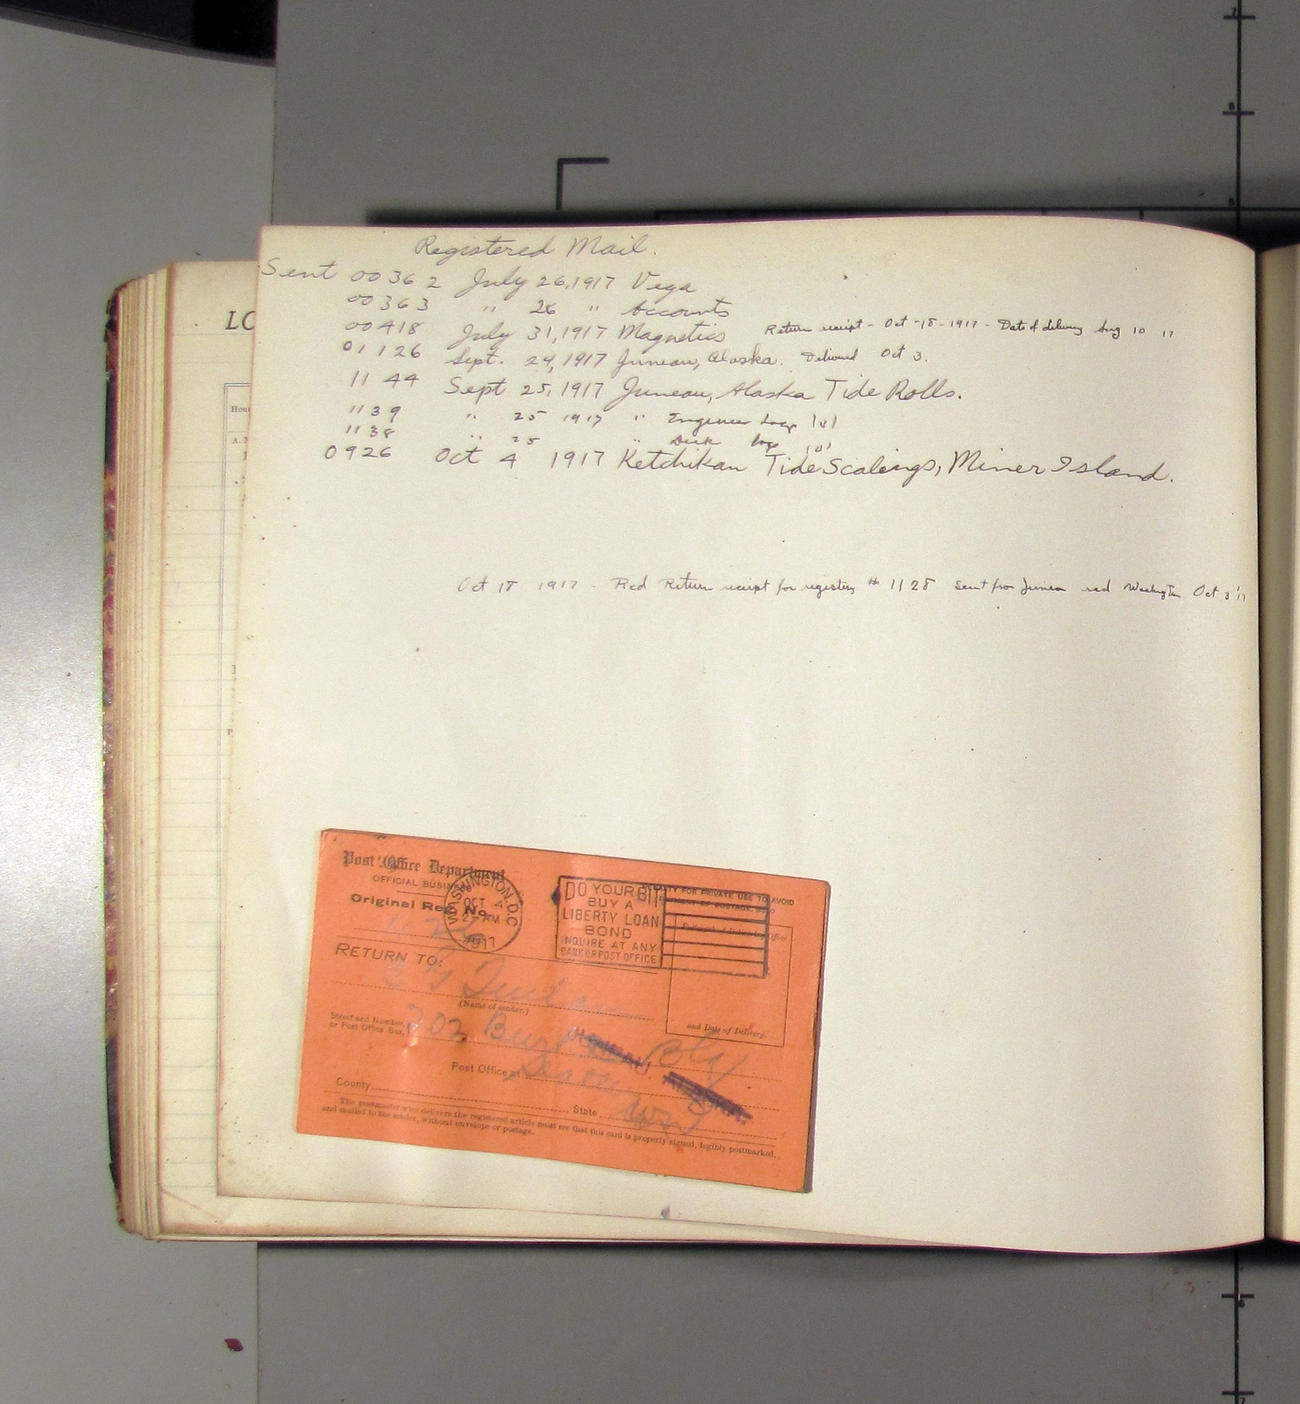 LO
Registered Mail.
Sent 00362 July 26, 1917 Vega
00363 " 26 " Accounts
00418 July 31, 1917 Magnetics Return receipt - Oct-18-1917 - Date of delivery Aug 10 17
01126 Sept. 24, 1917 Juneau, Alaska. Delivered Oct 3.
1144 Sept 25, 1917 Juneau, Alaska Tide Rolls.
1139 " 25 1917 " Engineer Logs
1138 " 25 " Deck logs
0926 Oct 4 1917 Ketchikan Tide Scalings, Miner Island.
Oct 18 1917 - Recd Return receipt for registery # 1128 Sent from Juneau recd Washington Oct 3 '17
Post Office Department
OFFICIAL BUSINESS
WASHINGTON, D.C.
OCT 4
1917
DO YOUR BIT
BUY A
LIBERTY LOAN
BOND
INQUIRE AT ANY
BANK OR POST OFFICE
FOR PRIVATE USE TO AVOID
Original Reg. No.
RETURN TO:
(Name of sender.)
Street and Number,
or Post Office Box, 202 Burke Bldg
JUNEAU, ALASKA.
and Date of Delivery.
Post Office at
County
State
The postmaster who delivers the registered article must see that this card is properly signed, legibly postmarked,
and mailed to the sender, without envelope or postage.